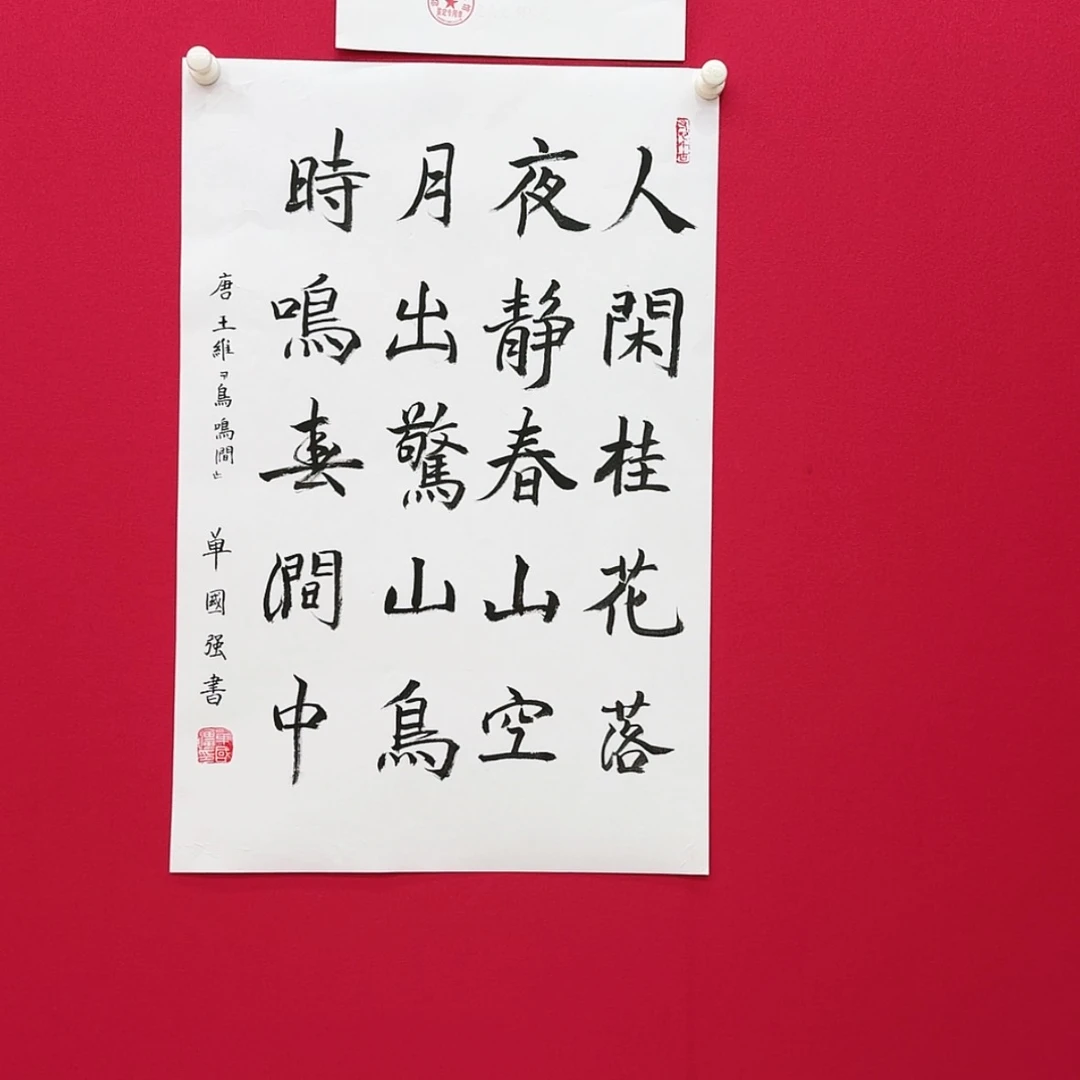 人閑桂花落
夜靜春山空
月出驚山鳥
時鳴春澗中
唐王維鳥鳴澗 單國强書